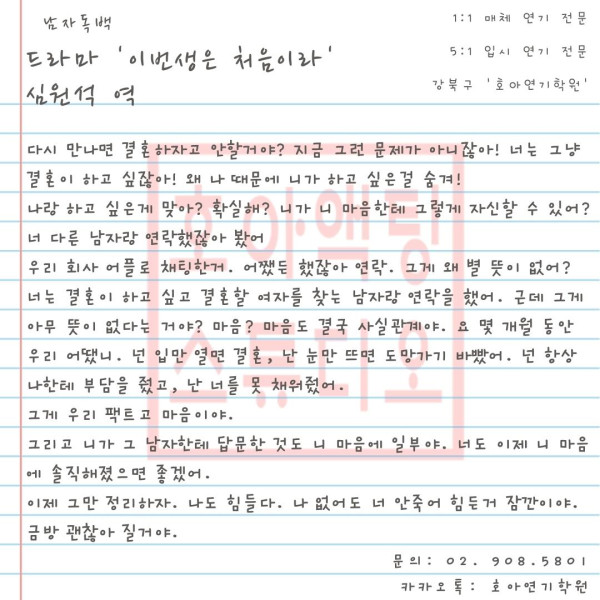 남자독백
1:1 매체 연기 전문
드라마 '이번생은 처음이라'
5:1 입시 연기 전문
심원석 역
강북구 '호아연기학원'
다시 만나면 결혼하자고 안할거야? 지금 그런 문제가 아니잖아! 너는 그냥
결혼이 하고 싶잖아! 왜 나 때문에 니가 하고 싶은걸 숨겨!
나랑 하고 싶은게 맞아? 확실해? 니가 니 마음한테 그렇게 자신할 수 있어?
너 다른 남자랑 연락했잖아 봤어
우리 회사 어플로 채팅한거. 어쨌든 했잖아 연락. 그게 왜 별 뜻이 없어?
너는 결혼이 하고 싶고 결혼할 여자를 찾는 남자랑 연락을 했어. 근데 그게
아무 뜻이 없다는 거야? 마음? 마음도 결국 사실관계야. 요 몇 개월 동안
우리 어땠니. 넌 입만 열면 결혼, 난 눈만 뜨면 도망가기 바빴어. 넌 항상
나한테 부담을 줬고, 난 너를 못 채워줬어.
그게 우리 팩트고 마음이야.
그리고 니가 그 남자한테 답문한 것도 니 마음에 일부야. 너도 이제 니 마음
에 솔직해졌으면 좋겠어.
이제 그만 정리하자. 나도 힘들다. 나 없어도 너 안죽어 힘든거 잠깐이야.
금방 괜찮아 질거야.
호아액팅
스튜디오
문의: 02. 908.5801
카카오톡: 호아연기학원